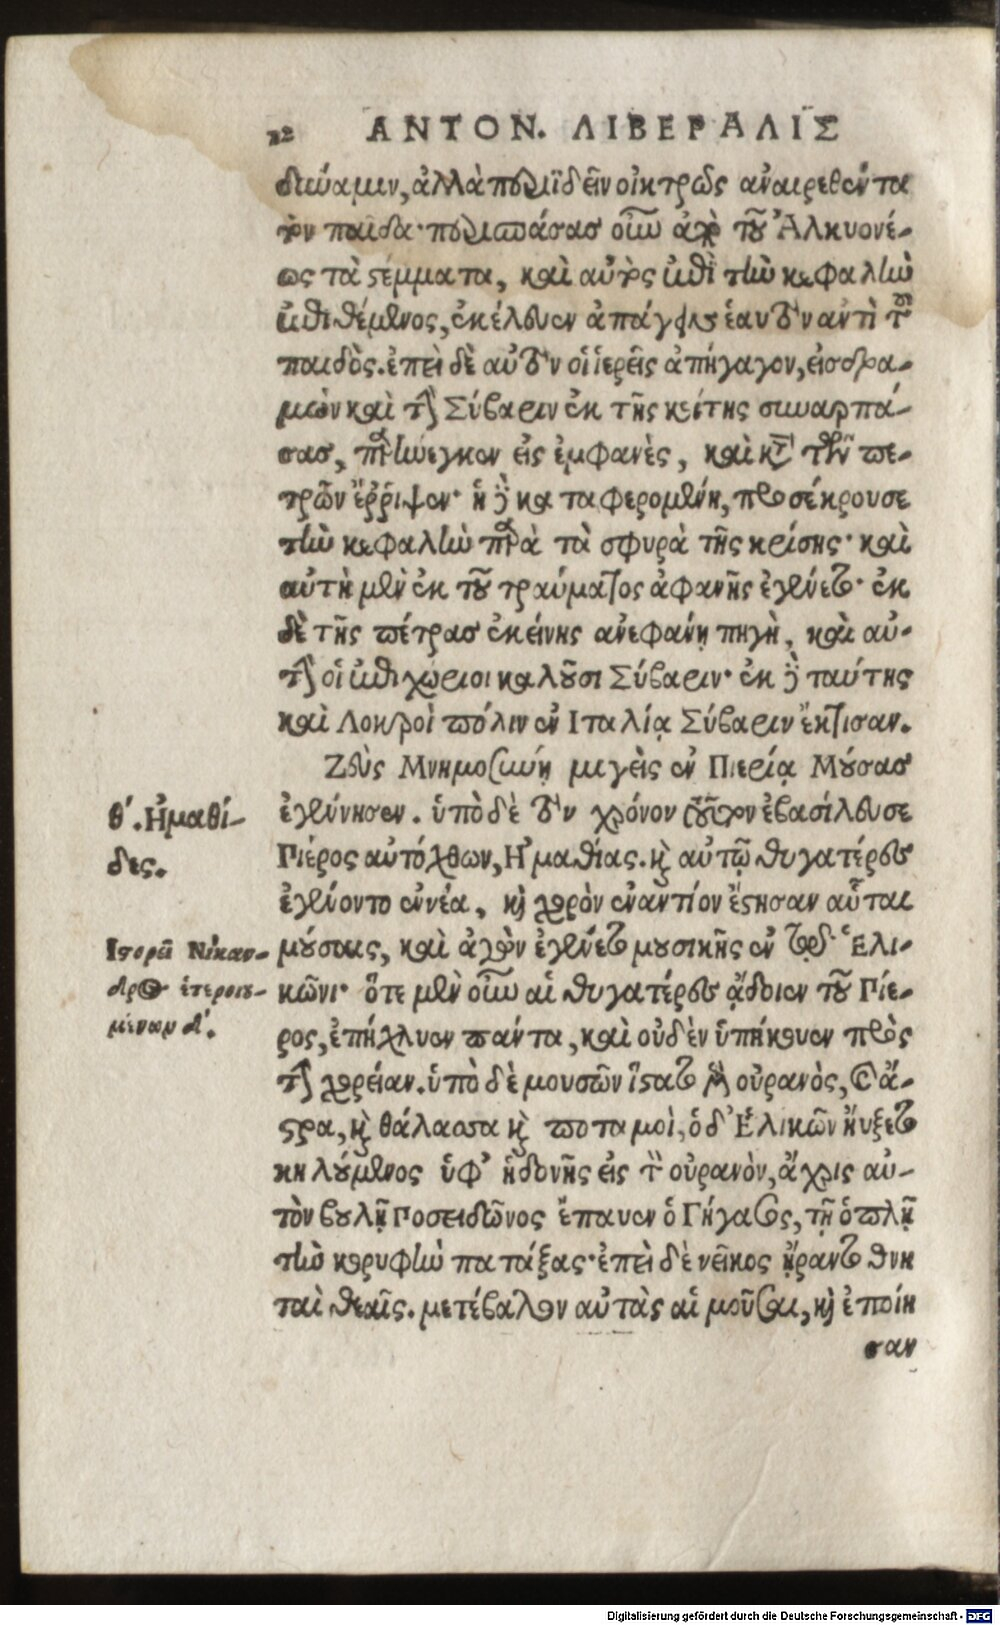 12 ΑΝΤΟΝ. ΛΙΒΕΡΑΛΙΣ
δύναμιν, ἀλλὰ περιϊδεῖν οἰκτρῶς ἀναιρεθέντα
τὸν παῖδα· περισπάσας οὖν ἀπὸ τοῦ Ἀλκυονέ-
ως τὰ στέμματα, καὶ αὐτὸς ἐπὶ τὴν κεφαλὴν
ἐπιθέμενος, ἐκέλευεν ἀπάγειν ἑαυτὸν ἀντὶ τοῦ
παιδός. ἐπεὶ δὲ αὐτὸν οἱ ἱερεῖς ἀπήγαγον, εἰσδρα-
μὼν καὶ τὴν Σύβαριν ἐκ τῆς κοίτης συναρπά-
σας, παρήνεγκεν εἰς ἐμφανὲς, καὶ κατὰ τῶν πε-
τρῶν ἔῤῥιψεν· ἡ δὲ καταφερομένη, προσέκρουσε
τὴν κεφαλὴν παρὰ τὰ σφυρὰ τῆς κρίσης· καὶ
αὐτὴ μὲν ἐκ τοῦ τραύματος ἀφανὴς ἐγένετο· ἐκ
δὲ τῆς πέτρας ἐκείνης ἀνεφάνη πηγὴ, καὶ αὐ-
τὴν οἱ ἐπιχώριοι καλοῦσι Σύβαριν· ἐκ δὲ ταύτης
καὶ Λοκροὶ πόλιν ἐν Ιταλίᾳ Σύβαριν ἔκτισαν.
Ζεὺς Μνημοσύνῃ μιγεὶς ἐν Πιερίᾳ Μούσας
θʹ. Ἠμαθί-
δες.
ἐγέννησεν. ὑπὸ δὲ τὸν χρόνον τοῦτον ἐβασίλευσε
Πιέρος αὐτόχθων, Ἠμαθίας. καὶ αὐτῷ θυγατέρες
ἐγένοντο ἐννέα, καὶ χορὸν ἐναντίον ἔστησαν αὗται
Ιστορεῖ Νίκαν-
δρος ἑτεροιου-
μένων δʹ.
μούσαις, καὶ ἀγὼν ἐγένετο μουσικῆς ἐν τῷ Ἑλι-
κῶνι· ὅτε μὲν οὖν αἱ θυγατέρες ᾄδοιεν τοῦ Πιέ-
ρος, ἐπήχλυεν πάντα, καὶ οὐδὲν ὑπήκουεν πρὸς
τὴν χορείαν. ὑπὸ δὲ μουσῶν ἵστατο μὲν οὐρανὸς, καὶ ἄ-
στρα, καὶ θάλασσα καὶ ποταμοὶ, ὁ δʼ Ἑλικῶν ηὔξετο
κηλούμενος ὑφʼ ἡδονῆς εἰς τὸν οὐρανὸν, ἄχρις αὐ-
τὸν βουλῇ Ποσειδῶνος ἔπαυεν ὁ Πήγασος, τῇ ὁπλῇ
τὴν κορυφὴν πατάξας· ἐπεὶ δὲ νεῖκος ἤραντο θνη
ταὶ θεαῖς. μετέβαλον αὐτὰς αἱ μοῦσαι, καὶ ἐποίη
σαν
Digitalisierung gefördert durch die Deutsche Forschungsgemeinschaft - DFG